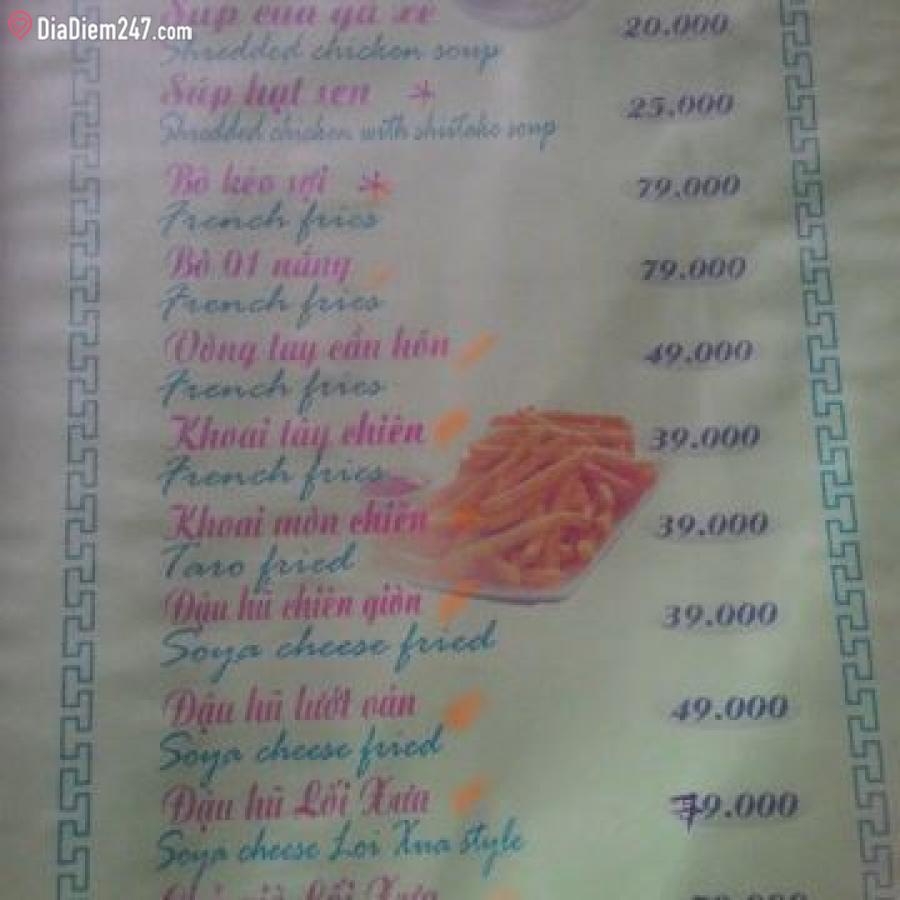 DiaDiem247.com
Súp cua gà xé 20.000
Shredded chicken soup
Súp hạt sen * 25.000
Shredded chicken with shiitake soup
Bò kéo sợi * 79.000
French fries
Bò 01 nắng 79.000
French fries
Vòng tay cầu hôn 49.000
French fries
Khoai tây chiên 39.000
French fries
Khoai môn chiên 39.000
Taro fried
Đậu hũ chiên giòn 39.000
Soya cheese fried
Đậu hũ lướt ván 49.000
Soya cheese fried
Đậu hũ Lối Xưa 79.000
Soya cheese Loi Xua style
Lối Xưa